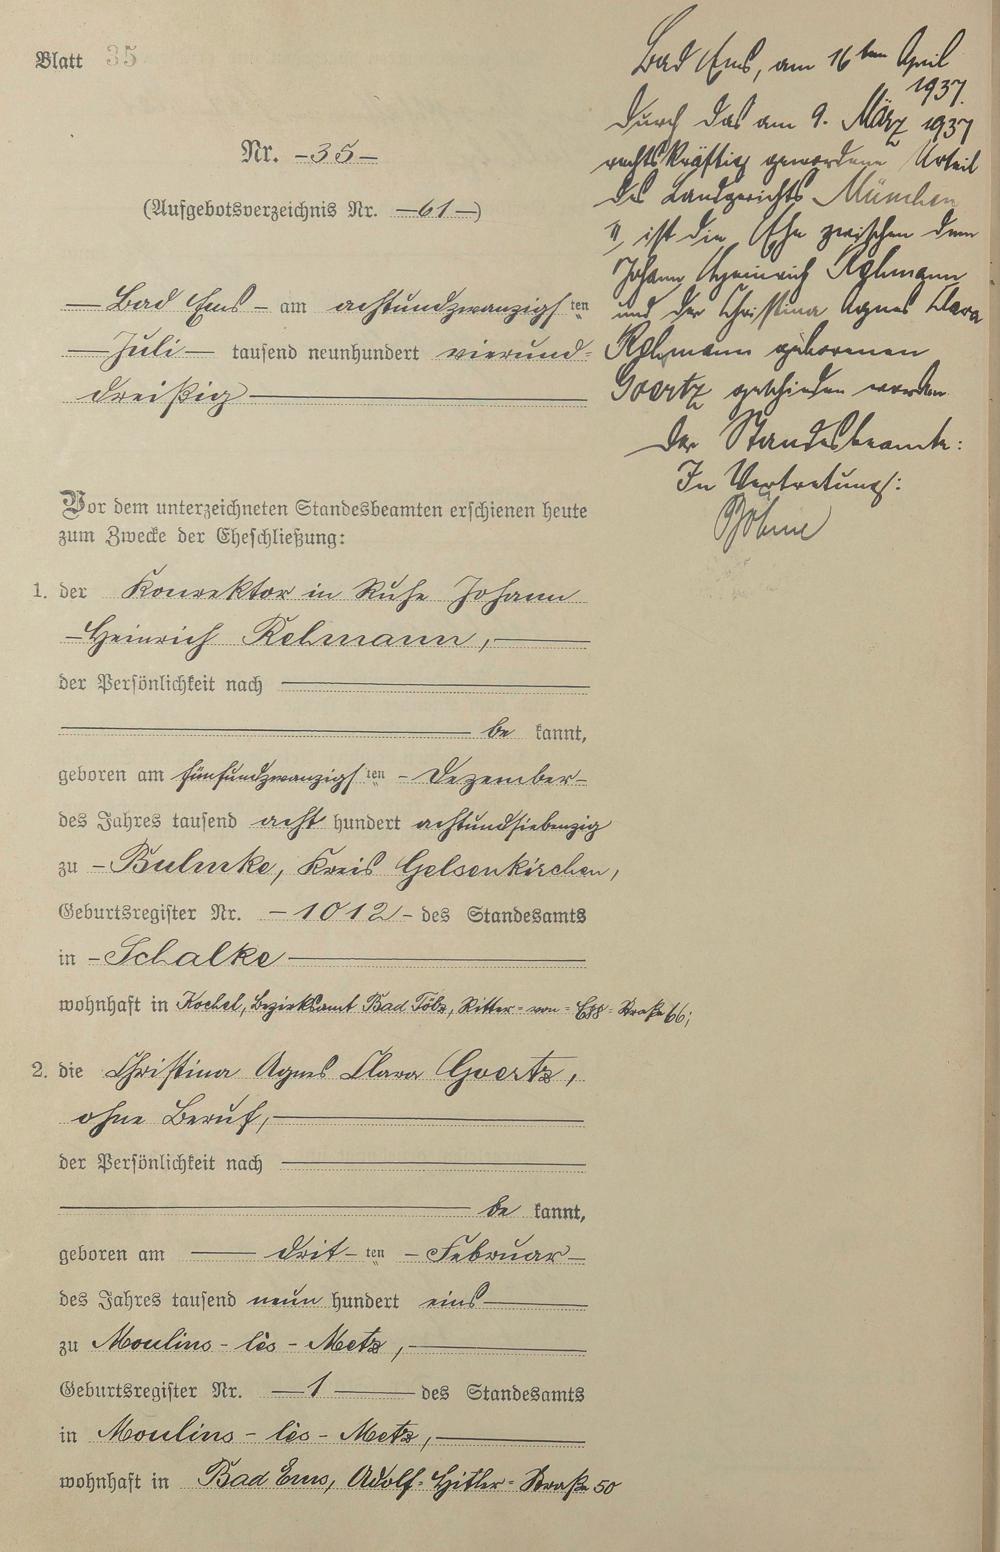 Blatt 35
Nr. -35-
(Aufgebotsverzeichnis Nr. -61-)
- Bad Ems - am achtundzwanzigsten
- Juli - tausend neunhundert vierund-
dreißig
Vor dem unterzeichneten Standesbeamten erschienen heute
zum Zwecke der Eheschließung:
1. der Konrektor in Ruhe Johann
- Heinrich Rehmann,
der Persönlichkeit nach
be kannt,
geboren am fünfundzwanzigsten - Dezember -
des Jahres tausend acht hundert achtundsiebenzig
zu - Bulmke, Kreis Gelsenkirchen,
Geburtsregister Nr. - 1012 - des Standesamts
in - Schalke
wohnhaft in Kochel, Bezirksamt Bad Tölz, Ritter-von-Epp-Straße 66;
2. die Christina Agnes Clara Goertz,
ohne Beruf,
der Persönlichkeit nach
be kannt,
geboren am drit-ten - Februar -
des Jahres tausend neun hundert eins
zu Moulins-lès-Metz,
Geburtsregister Nr. - 1 - des Standesamts
in Moulins-lès-Metz,
wohnhaft in Bad Ems, Adolf-Hitler-Straße 50
Bad Ems, am 16ten April
1937.
Durch das am 9. März 1937
rechtskräftig gewordene Urteil
des Landgerichts München
II, ist die Ehe zwischen dem
Johann Heinrich Rehmann
und der Christina Agnes Clara
Rehmann geborenen
Goertz geschieden worden.
Der Standesbeamte:
In Vertretung: